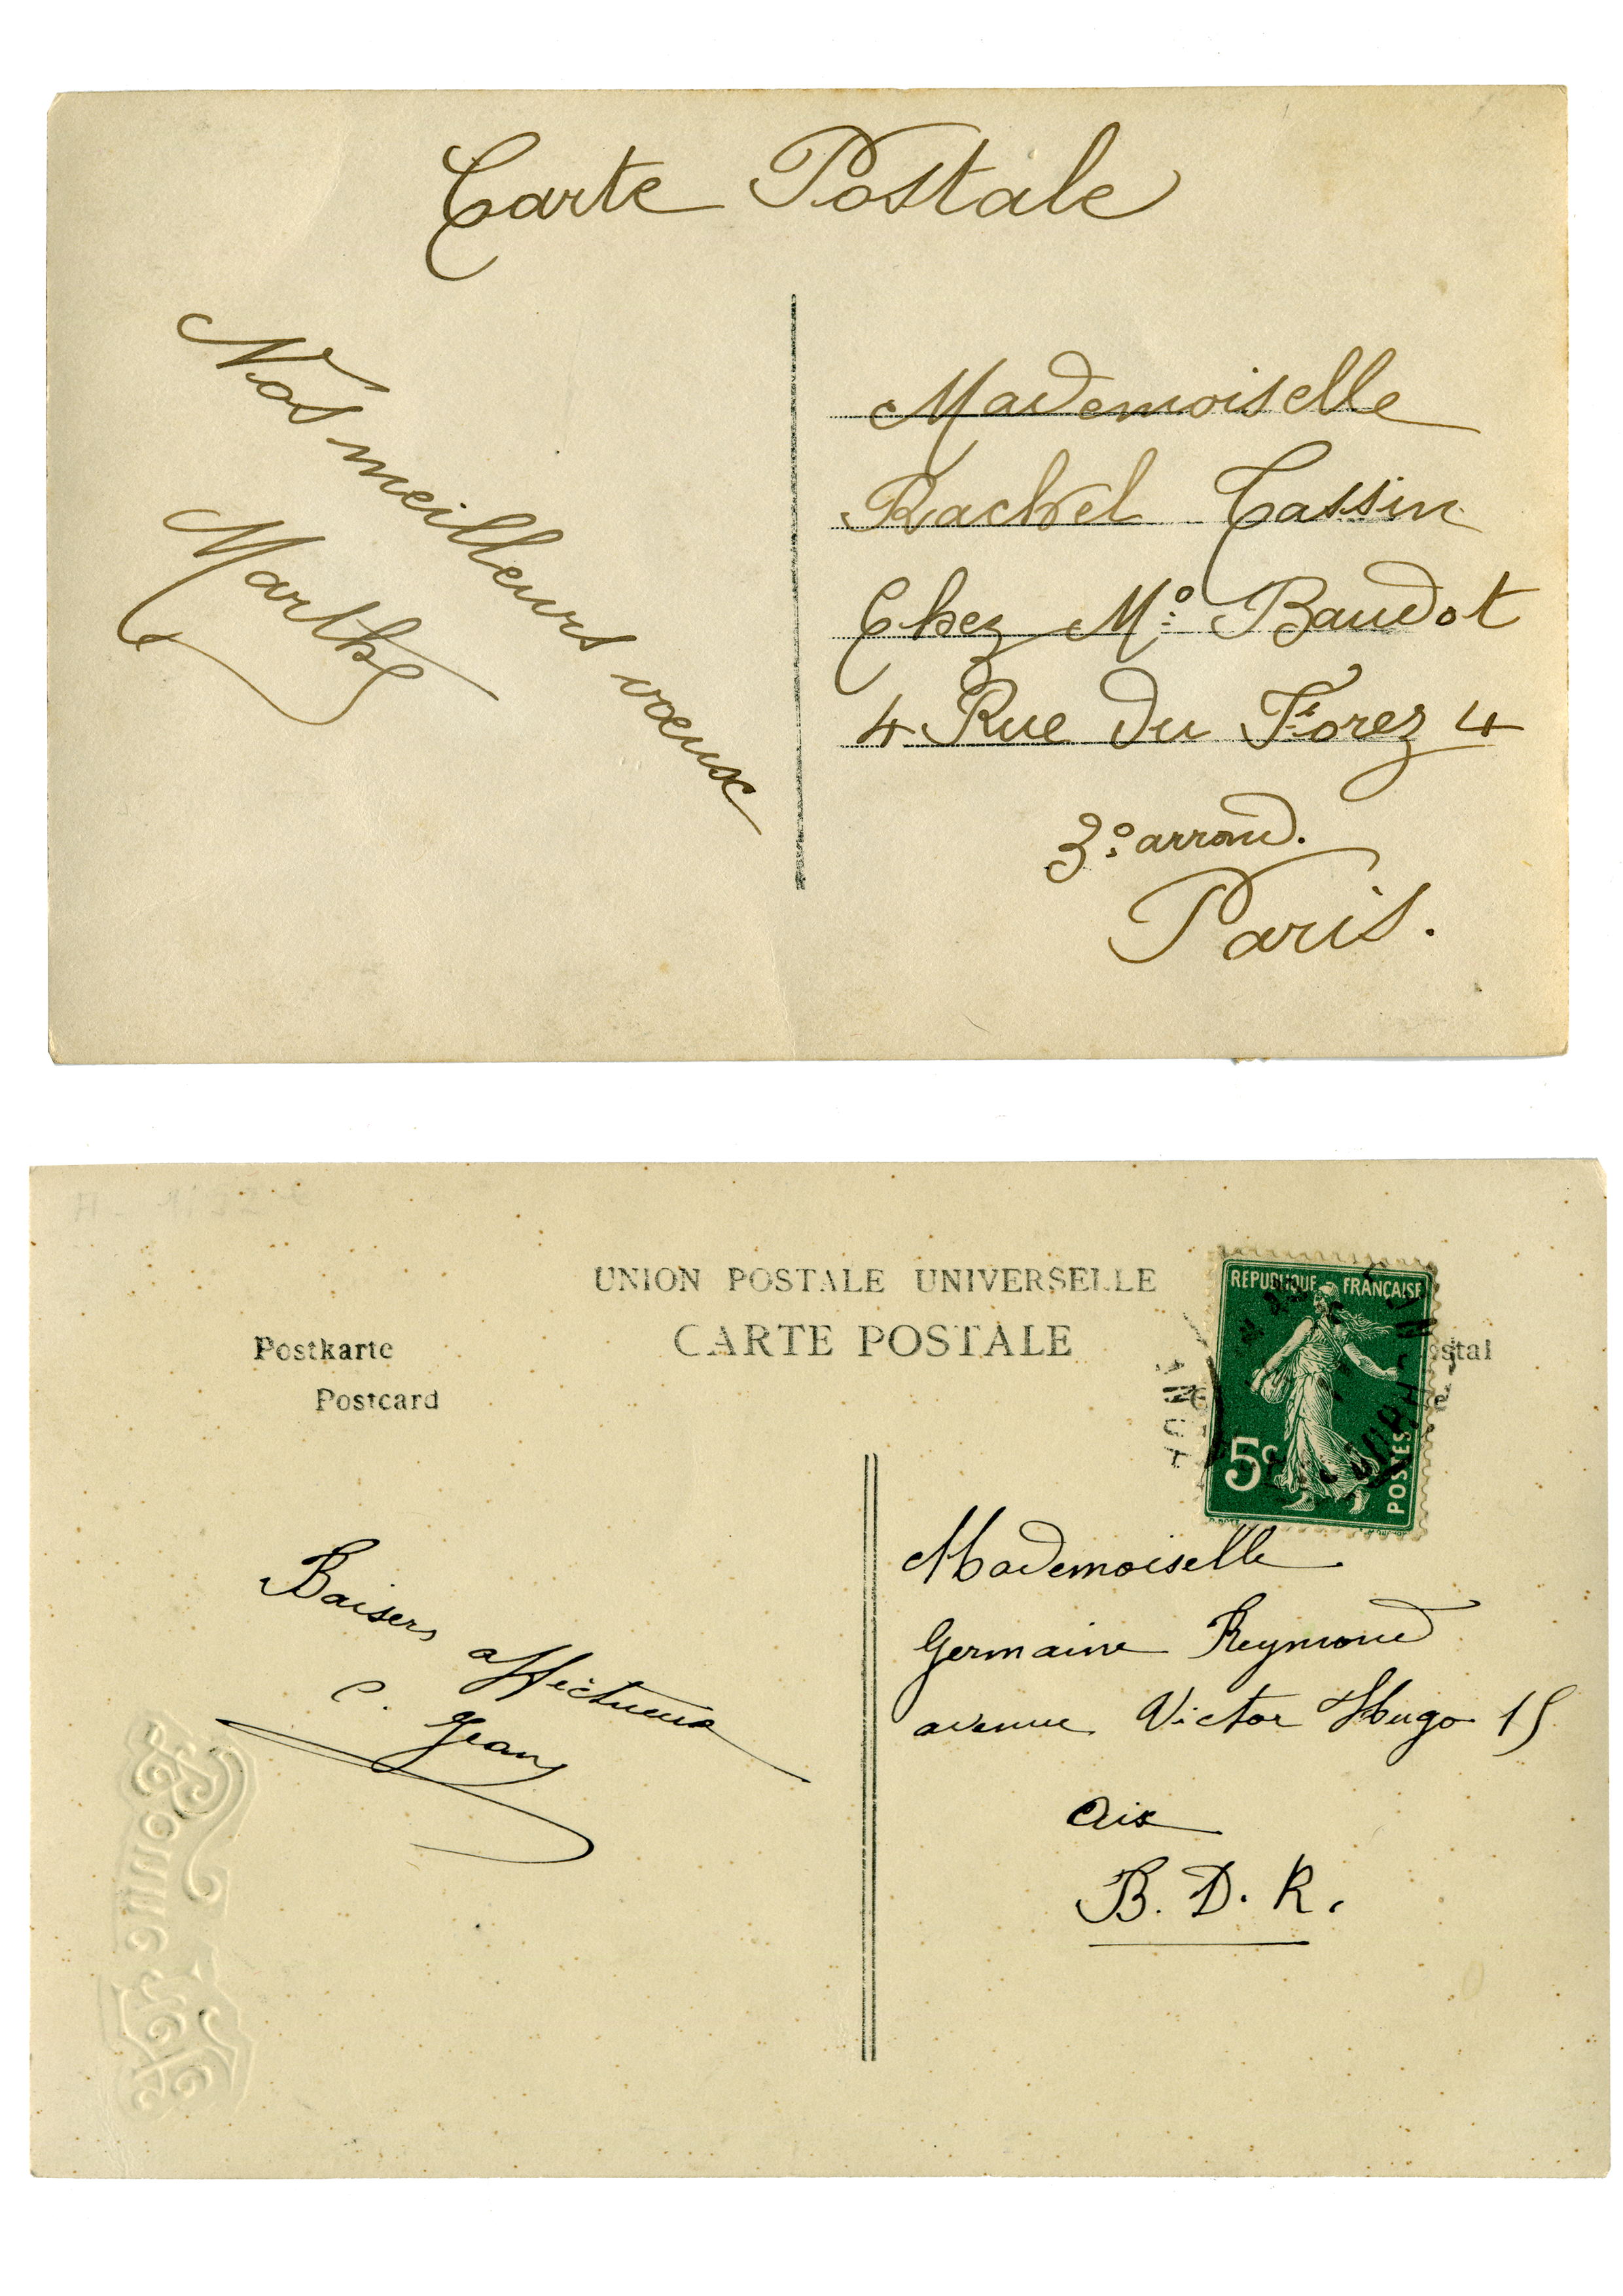 Carte Postale
Nos meilleurs vœux
Marthe
Mademoiselle
Rachel Cassin
Chez Mº Baudot
4 Rue du Forez 4
3º arrond.
Paris.
UNION POSTALE UNIVERSELLE
CARTE POSTALE
Postkarte
Postcard
stal
REPUBLIQUE FRANÇAISE
5c
POSTES
Baisers affectueux
C. Jean
Mademoiselle
Germaine Reymond
avenue Victor Hugo 15
Aix
B. D. R.